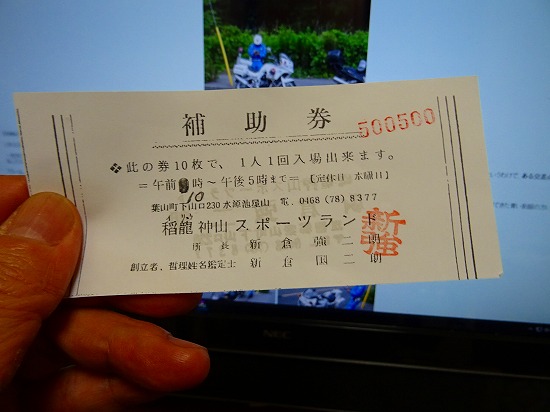 補助券
500500
❖此の券10枚で、1人1回入場出来ます。
＝午前 時～午後5時まで＝【定休日・水曜日】
10
葉山町下山口230水原池星山 電.0468(78)8377
稲龍神山スポーツランド
所長 新倉強二朗
新強
創立者、哲理姓名鑑定士 新倉国二朗
NEC